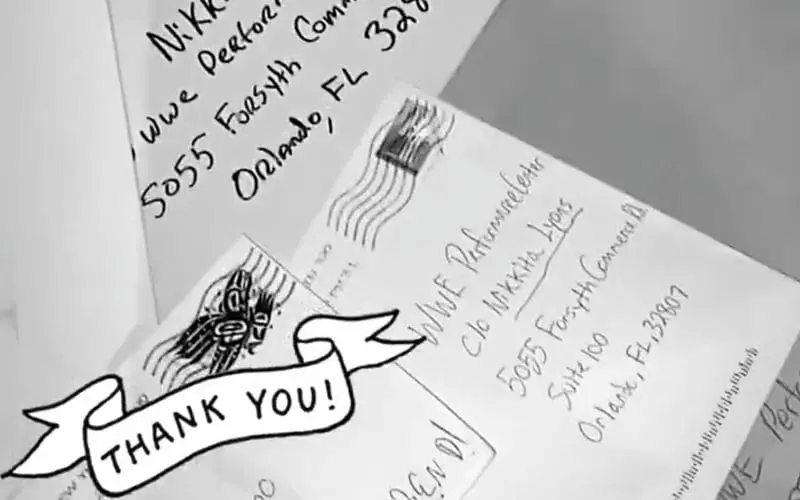 Nikki
WWE Perfor
5055 Forsyth Comm
Orlando, FL 328
WWE Performance Center
c/o Nikkita Lyons
5055 Forsyth Commerce Rd.
Suite 100
Orlando, FL, 32807
THANK YOU!
END!
WE Perf